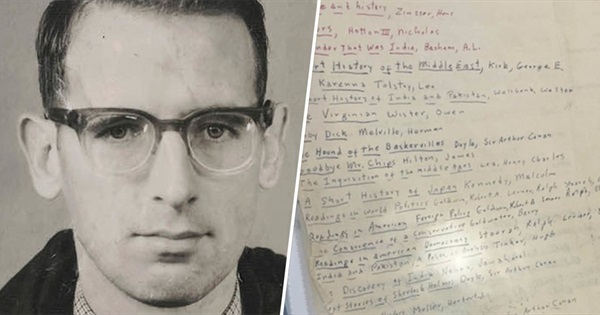 and history, Zinsser, Hans
Hatton III, Nicholas
that Was India, Basham, A.L.
History of the Middle East, Kirk, George E.
Karenna Tolstoy, Leo
History of India and Pakistan, Wallbank, Walter
Virginian Wister, Owen
Dick Melville, Herman
Hound of the Baskervilles Doyle, Sir Arthur Conan
Goodbye Mr. Chips Hilton, James
The Inquisition of the Middle Ages Lea, Henry Charles
A Short History of Japan Kennedy, Malcolm
Readings in World Politics Goldwin, Robert A. Lerner, Ralph
Readings in American Foreign Policy Goldwin, Robert A. Lerner, Ralph
Conscience of a Conservative Goldwater, Barry
Readings in American Democracy Stourzh, Ralph,
India and Pakistan, a Tinker, Hugh
Discovery of India Nehru, Jawaharlal
Stories of Sherlock Holmes Doyle, Sir Arthur Conan
Muller, Herbert J.
Arthur Conan